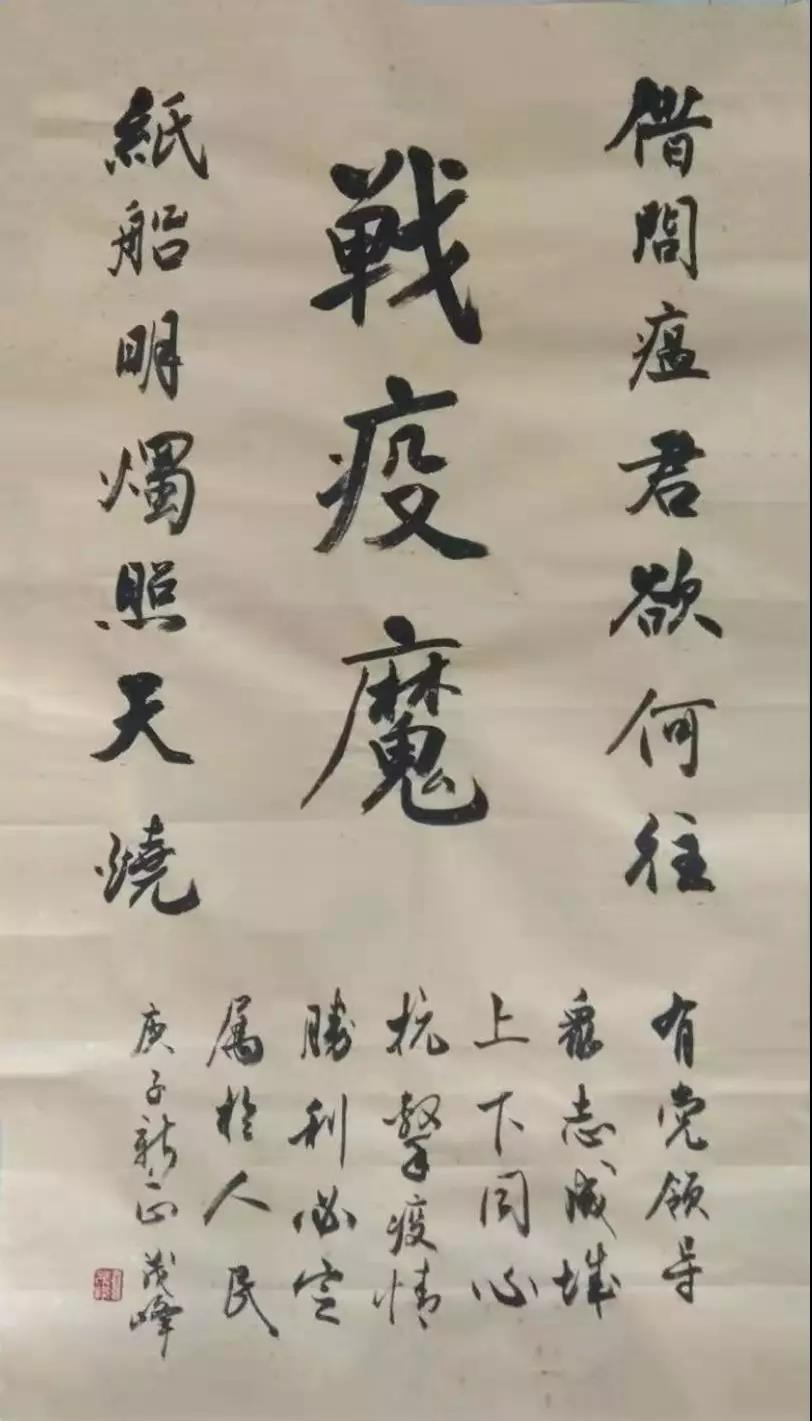 借問瘟君欲何往
戰疫魔
紙船明燭照天燒
有党领导
眾志成城
上下同心
抗擊疫情
勝利必定
属於人民
庚子新正 茂峰